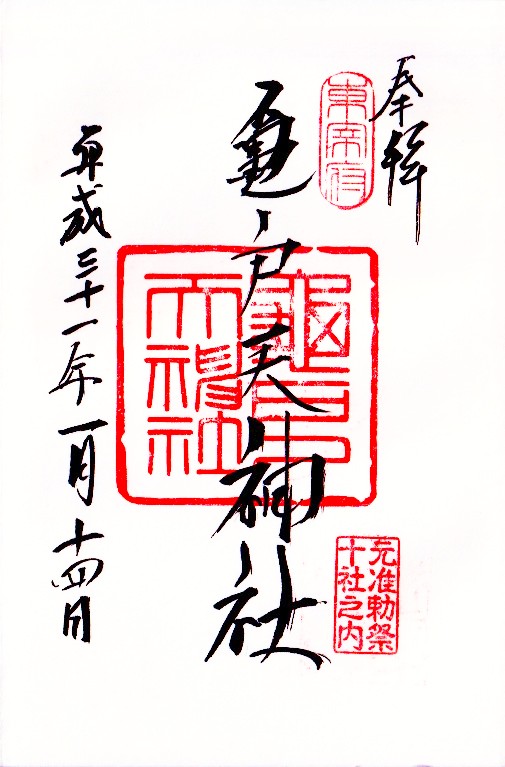 奉拝
東宰府
亀戸天神社
亀戸
天神社
元准勅祭
十社之内
平成三十一年一月十四日